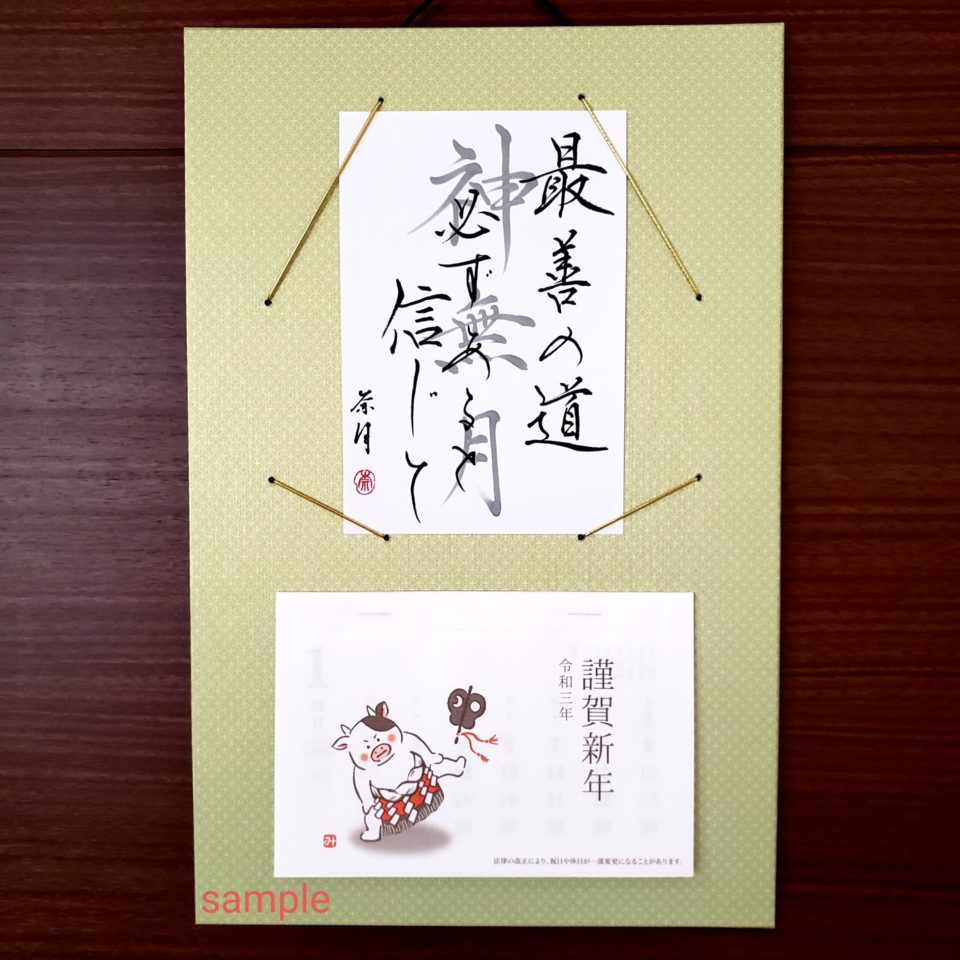 最善の道
必ずあると
信じて
神無月
謹賀新年
令和三年
み
法律の改正により、祝日や休日が一部変更になることがあります。
sample